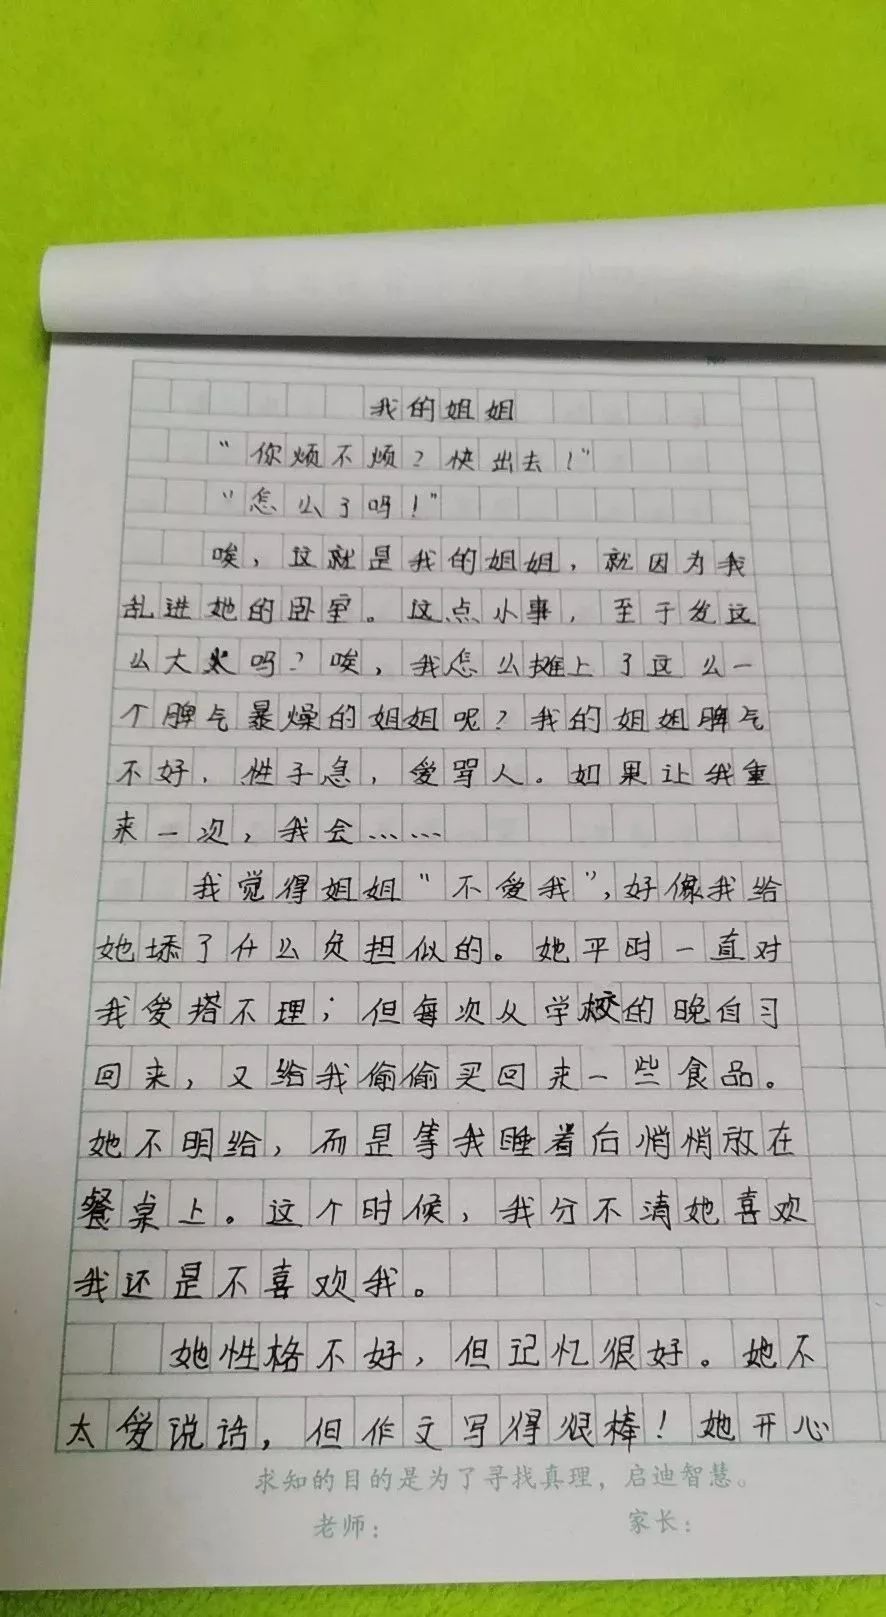 我的姐姐
“你烦不烦?快出去!”
“怎么了吗!”
唉,这就是我的姐姐,就因为我
乱进她的卧室。这点小事,至于发这
么大火吗?唉,我怎么摊上了这么一
个脾气暴燥的姐姐呢?我的姐姐脾气
不好,性子急,爱骂人。如果让我重
来一次,我会……
我觉得姐姐“不爱我”,好像我给
她添了什么负担似的。她平时一直对
我爱搭不理;但每次从学校的晚自习
回来,又给我偷偷买回来一些食品。
她不明给,而是等我睡着后悄悄放在
餐桌上。这个时候,我分不清她喜欢
我还是不喜欢我。
她性格不好,但记忆很好。她不
太爱说话,但作文写得很棒!她开心
求知的目的是为了寻找真理,启迪智慧。
老师: 家长: